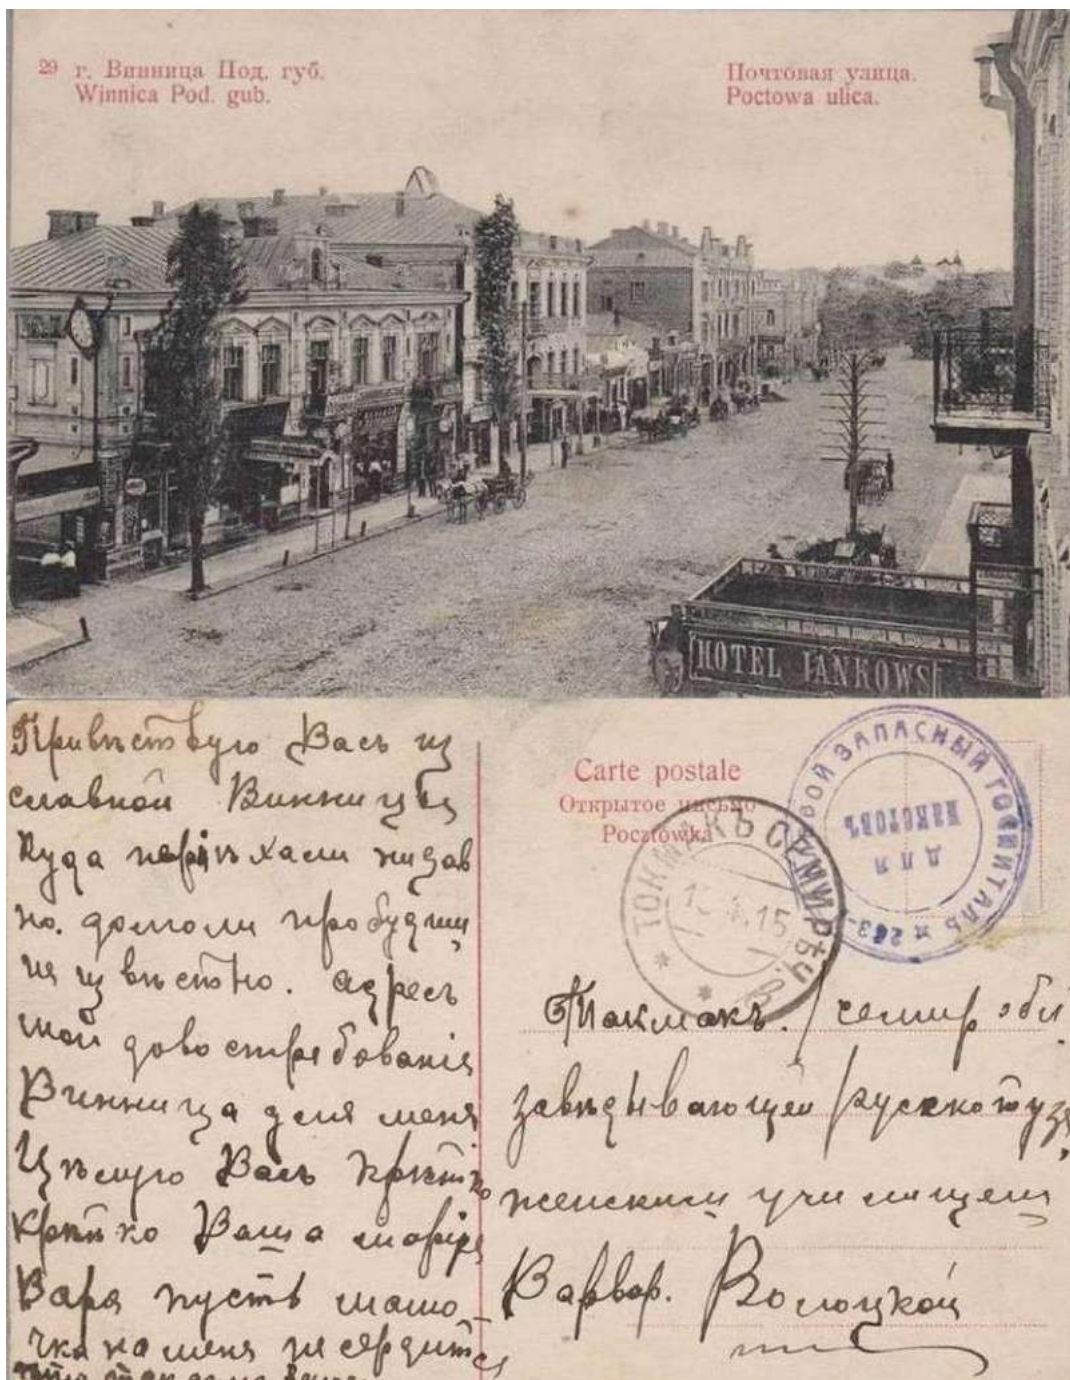 29 г. Винница Под. губ.
Winnica Pod. gub.
Почтовая улица.
Poctowa ulica.
HOTEL JANKOWS
Привѣствую Васъ из
славной Винницы
Куда переѣхали нидав
но. долголи пробудим
не извѣстно. адресъ
мой довостребованія
Винница для меня
Цѣлую Васъ крѣпко
крѣпко Ваша марія
Варя пусть мамо-
чка на меня не сердится
Carte postale
Открытое письмо
Pocztówka
ЗАПАСНЫЙ ГОСПИТАЛЬ 263
ДЛЯ
ПАКЕТОВЪ
ТОКМАКЪ СЕМИРѢЧ.
15
Такмакъ. семир обл
завѣдывающей русско-туз
женским училищем
Варвар. Волоцкой